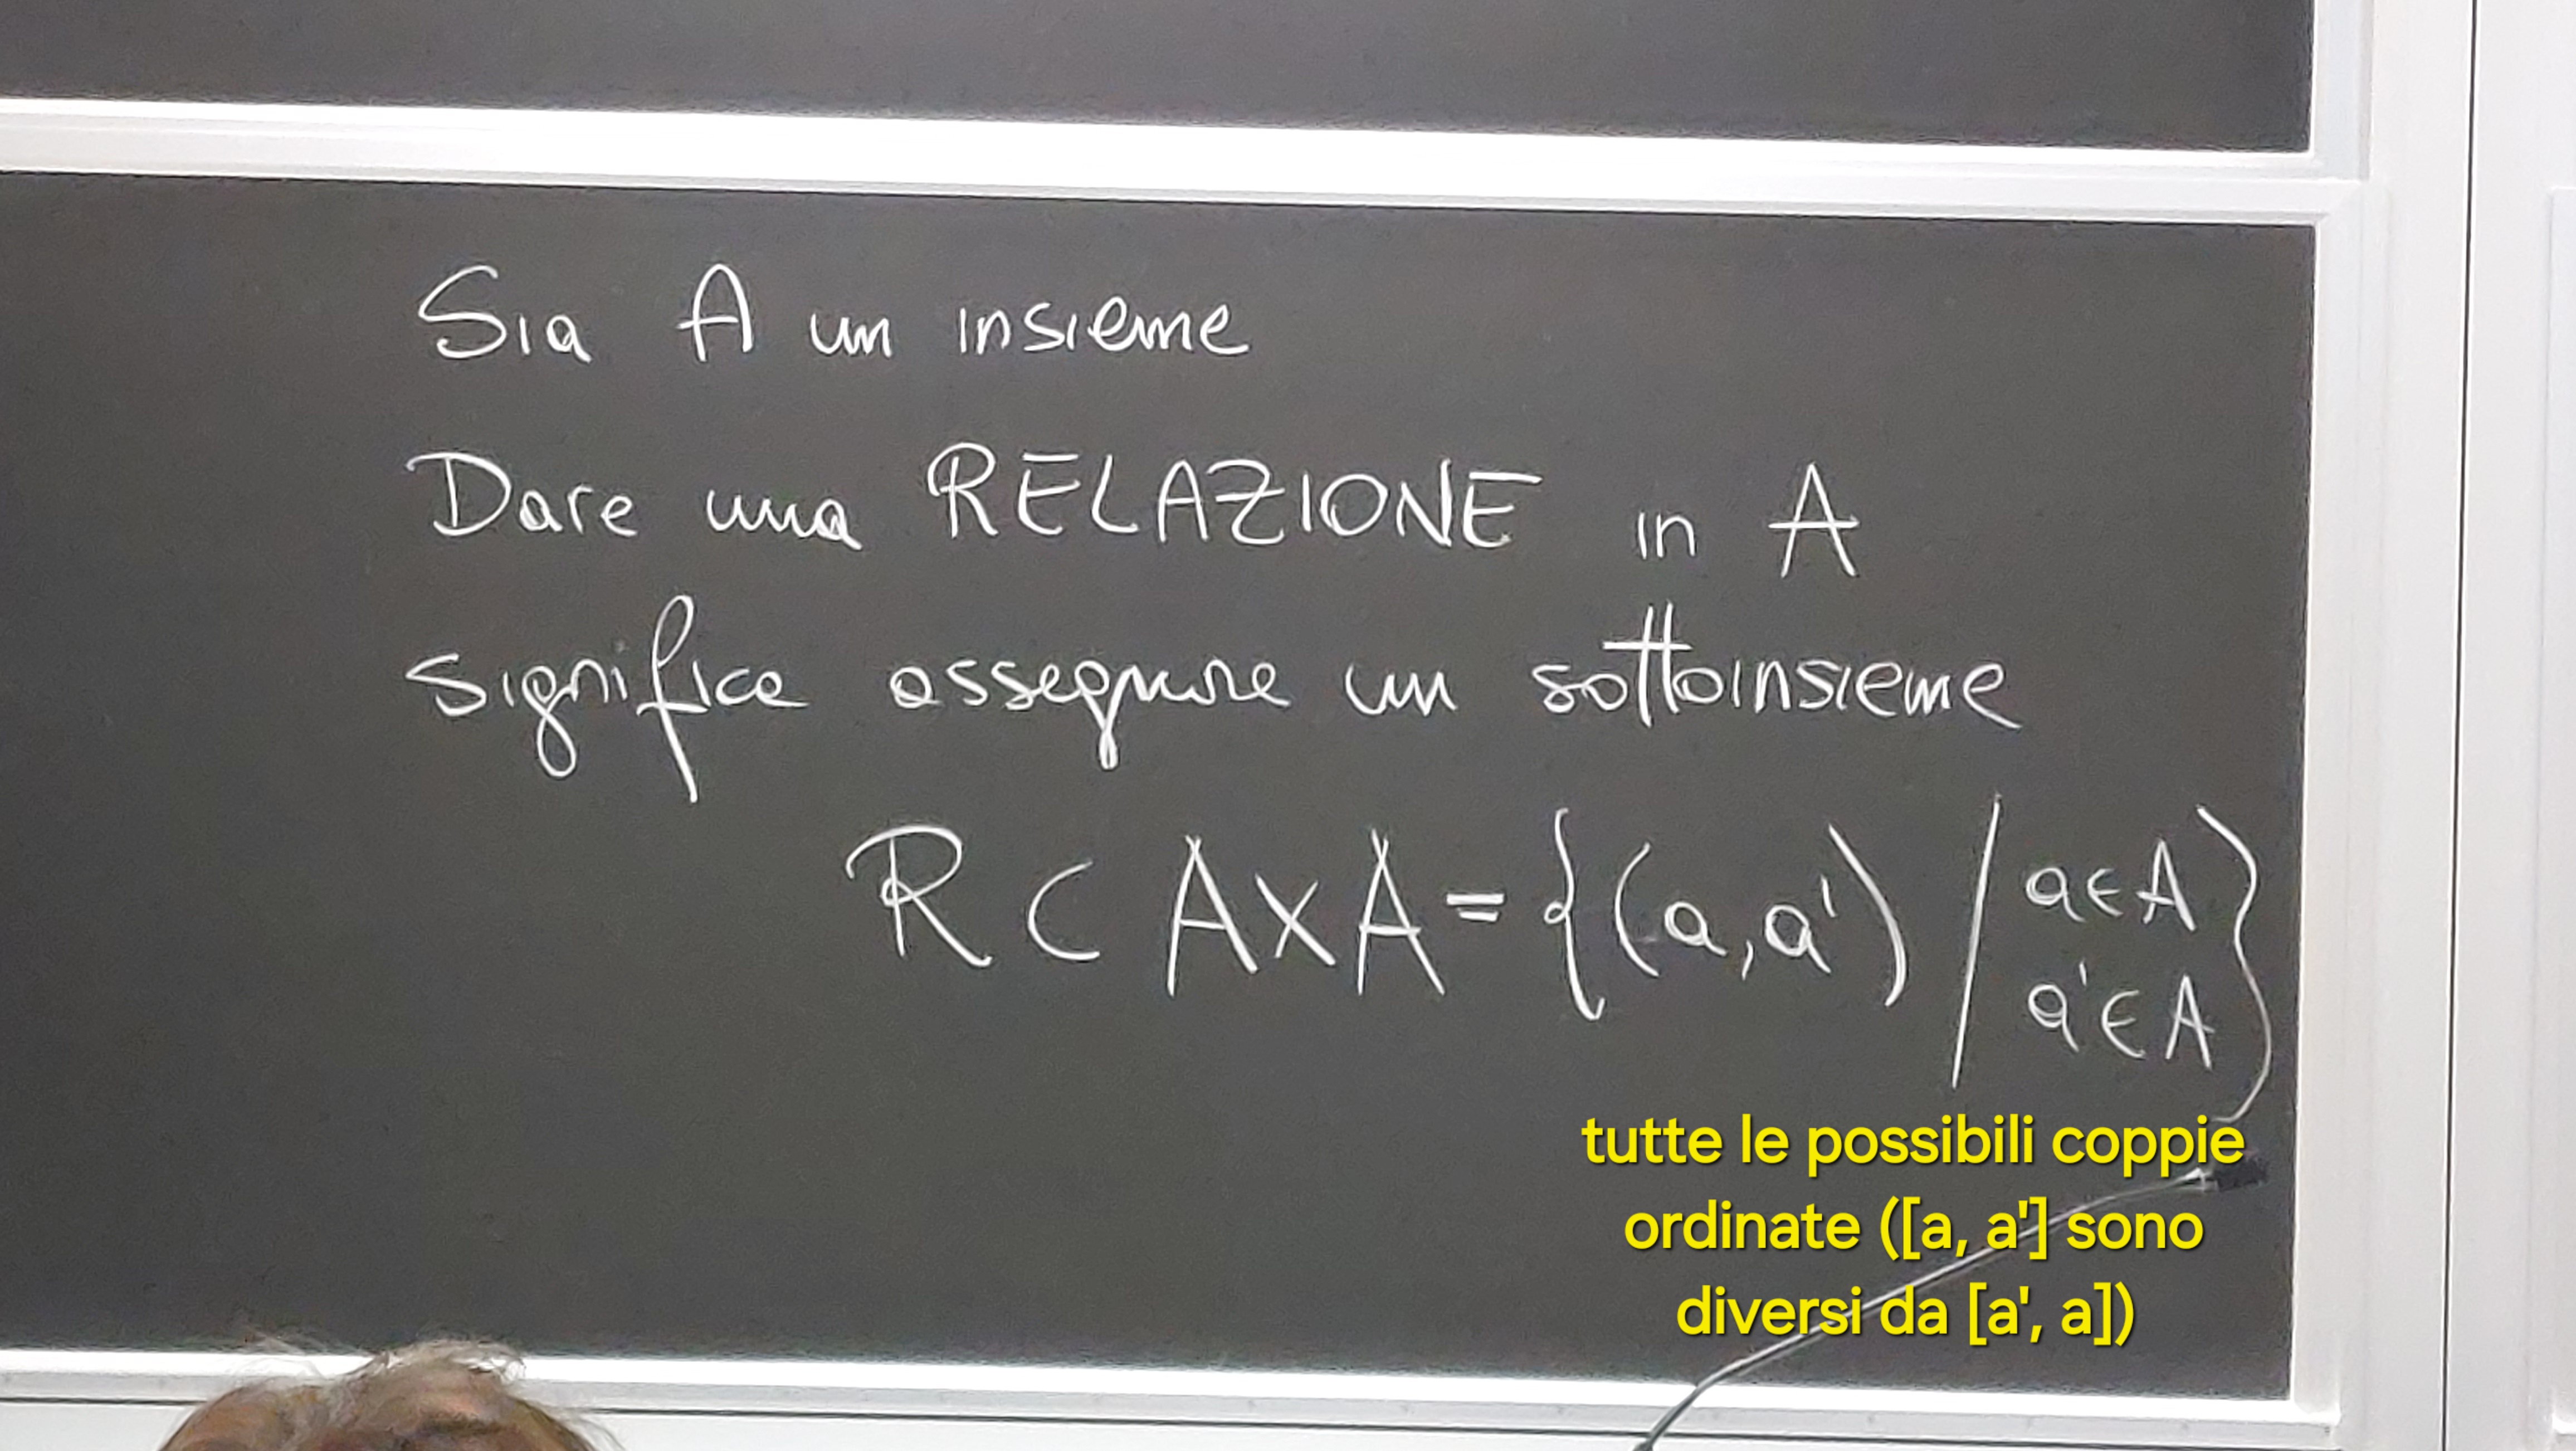 Sia A un insieme
Dare una RELAZIONE in A
significa assegnare un sottoinsieme
R ⊂ A×A = {(a,a') / a∈A
a'∈A}
tutte le possibili coppie
ordinate ([a, a'] sono
diversi da [a', a])